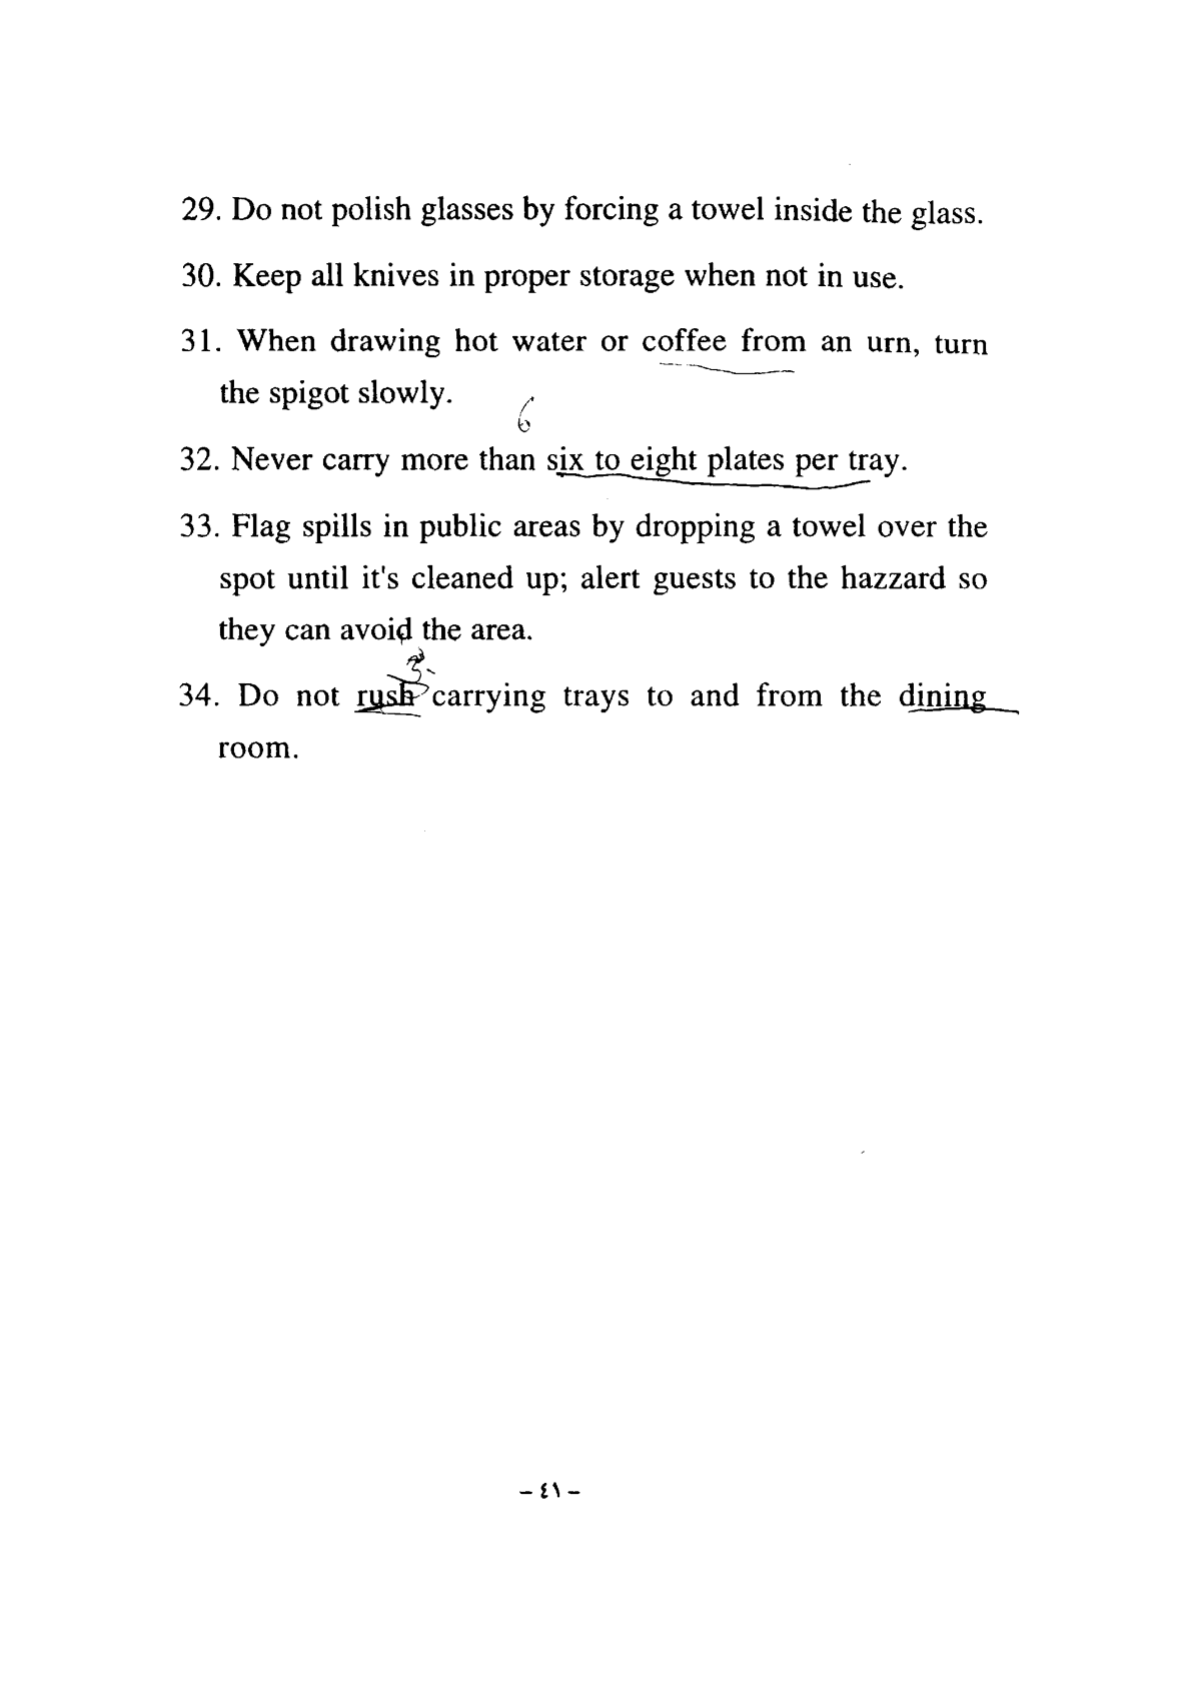 29. Do not polish glasses by forcing a towel inside the glass.
30. Keep all knives in proper storage when not in use.
31. When drawing hot water or coffee from an urn, turn
the spigot slowly.
6
32. Never carry more than six to eight plates per tray.
33. Flag spills in public areas by dropping a towel over the
spot until it's cleaned up; alert guests to the hazzard so
they can avoid the area.
34. Do not rush carrying trays to and from the dining
room.
- ٤١ -